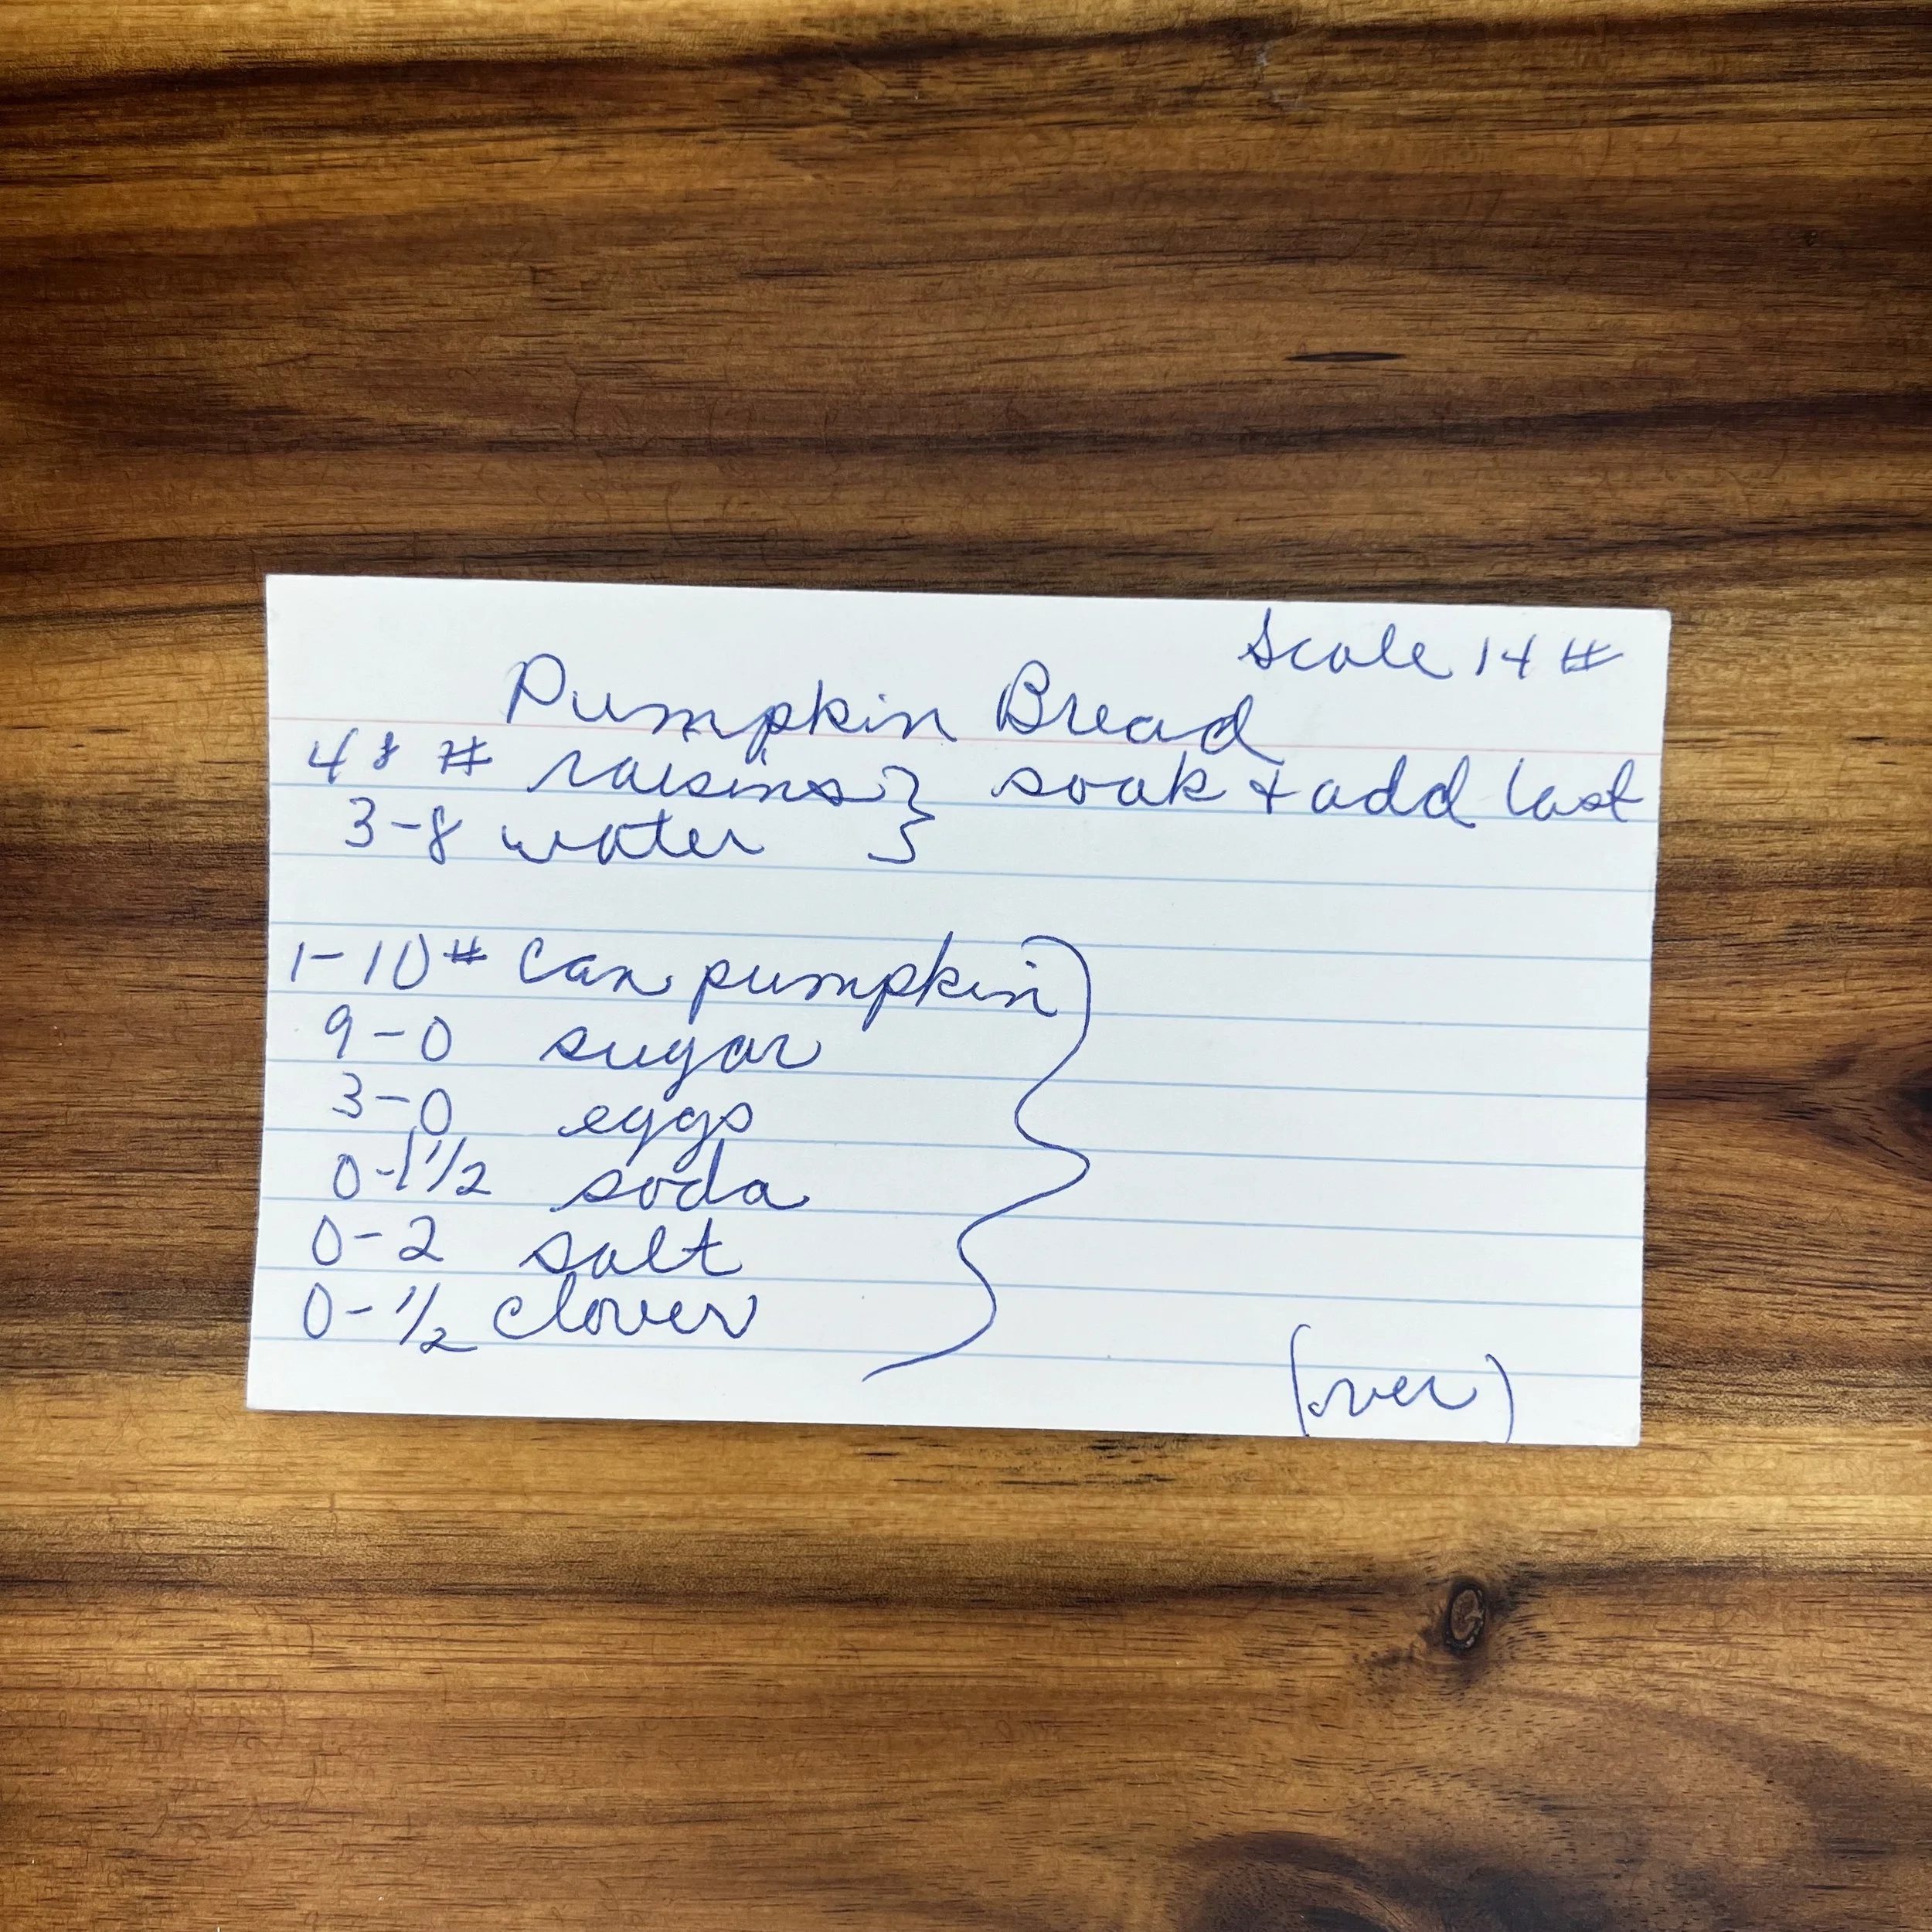 Scale 14 #
Pumpkin Bread
4 8 # raisins } soak + add last
3-8 water }
1-10 # can pumpkin
9-0 sugar
3-0 eggs
0-1 1/2 soda
0-2 salt
0-1/2 cloves
(over)